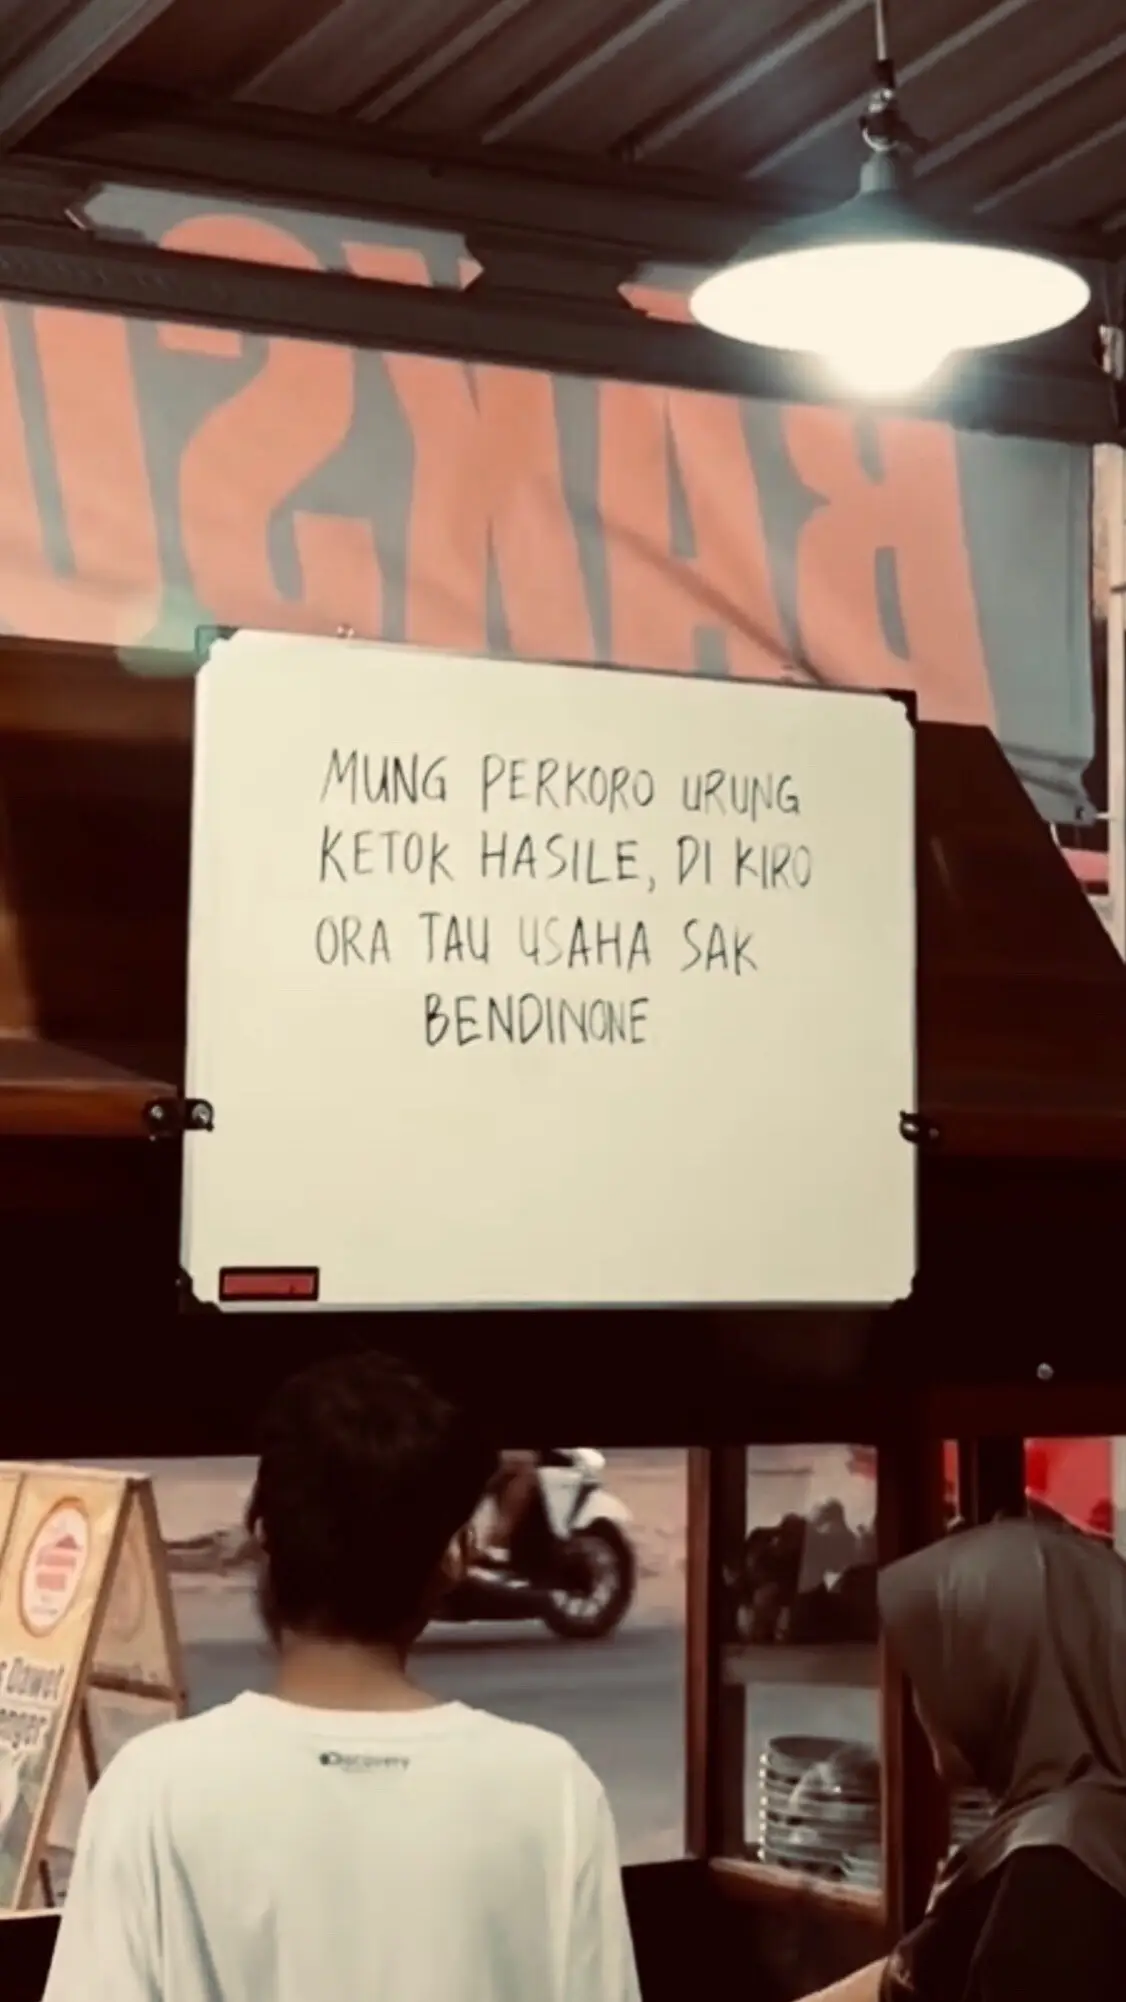 BAKSO
MUNG PERKORO URUNG
KETOK HASILE, DI KIRO
ORA TAU USAHA SAK
BENDINONE
Dawet
Discovery